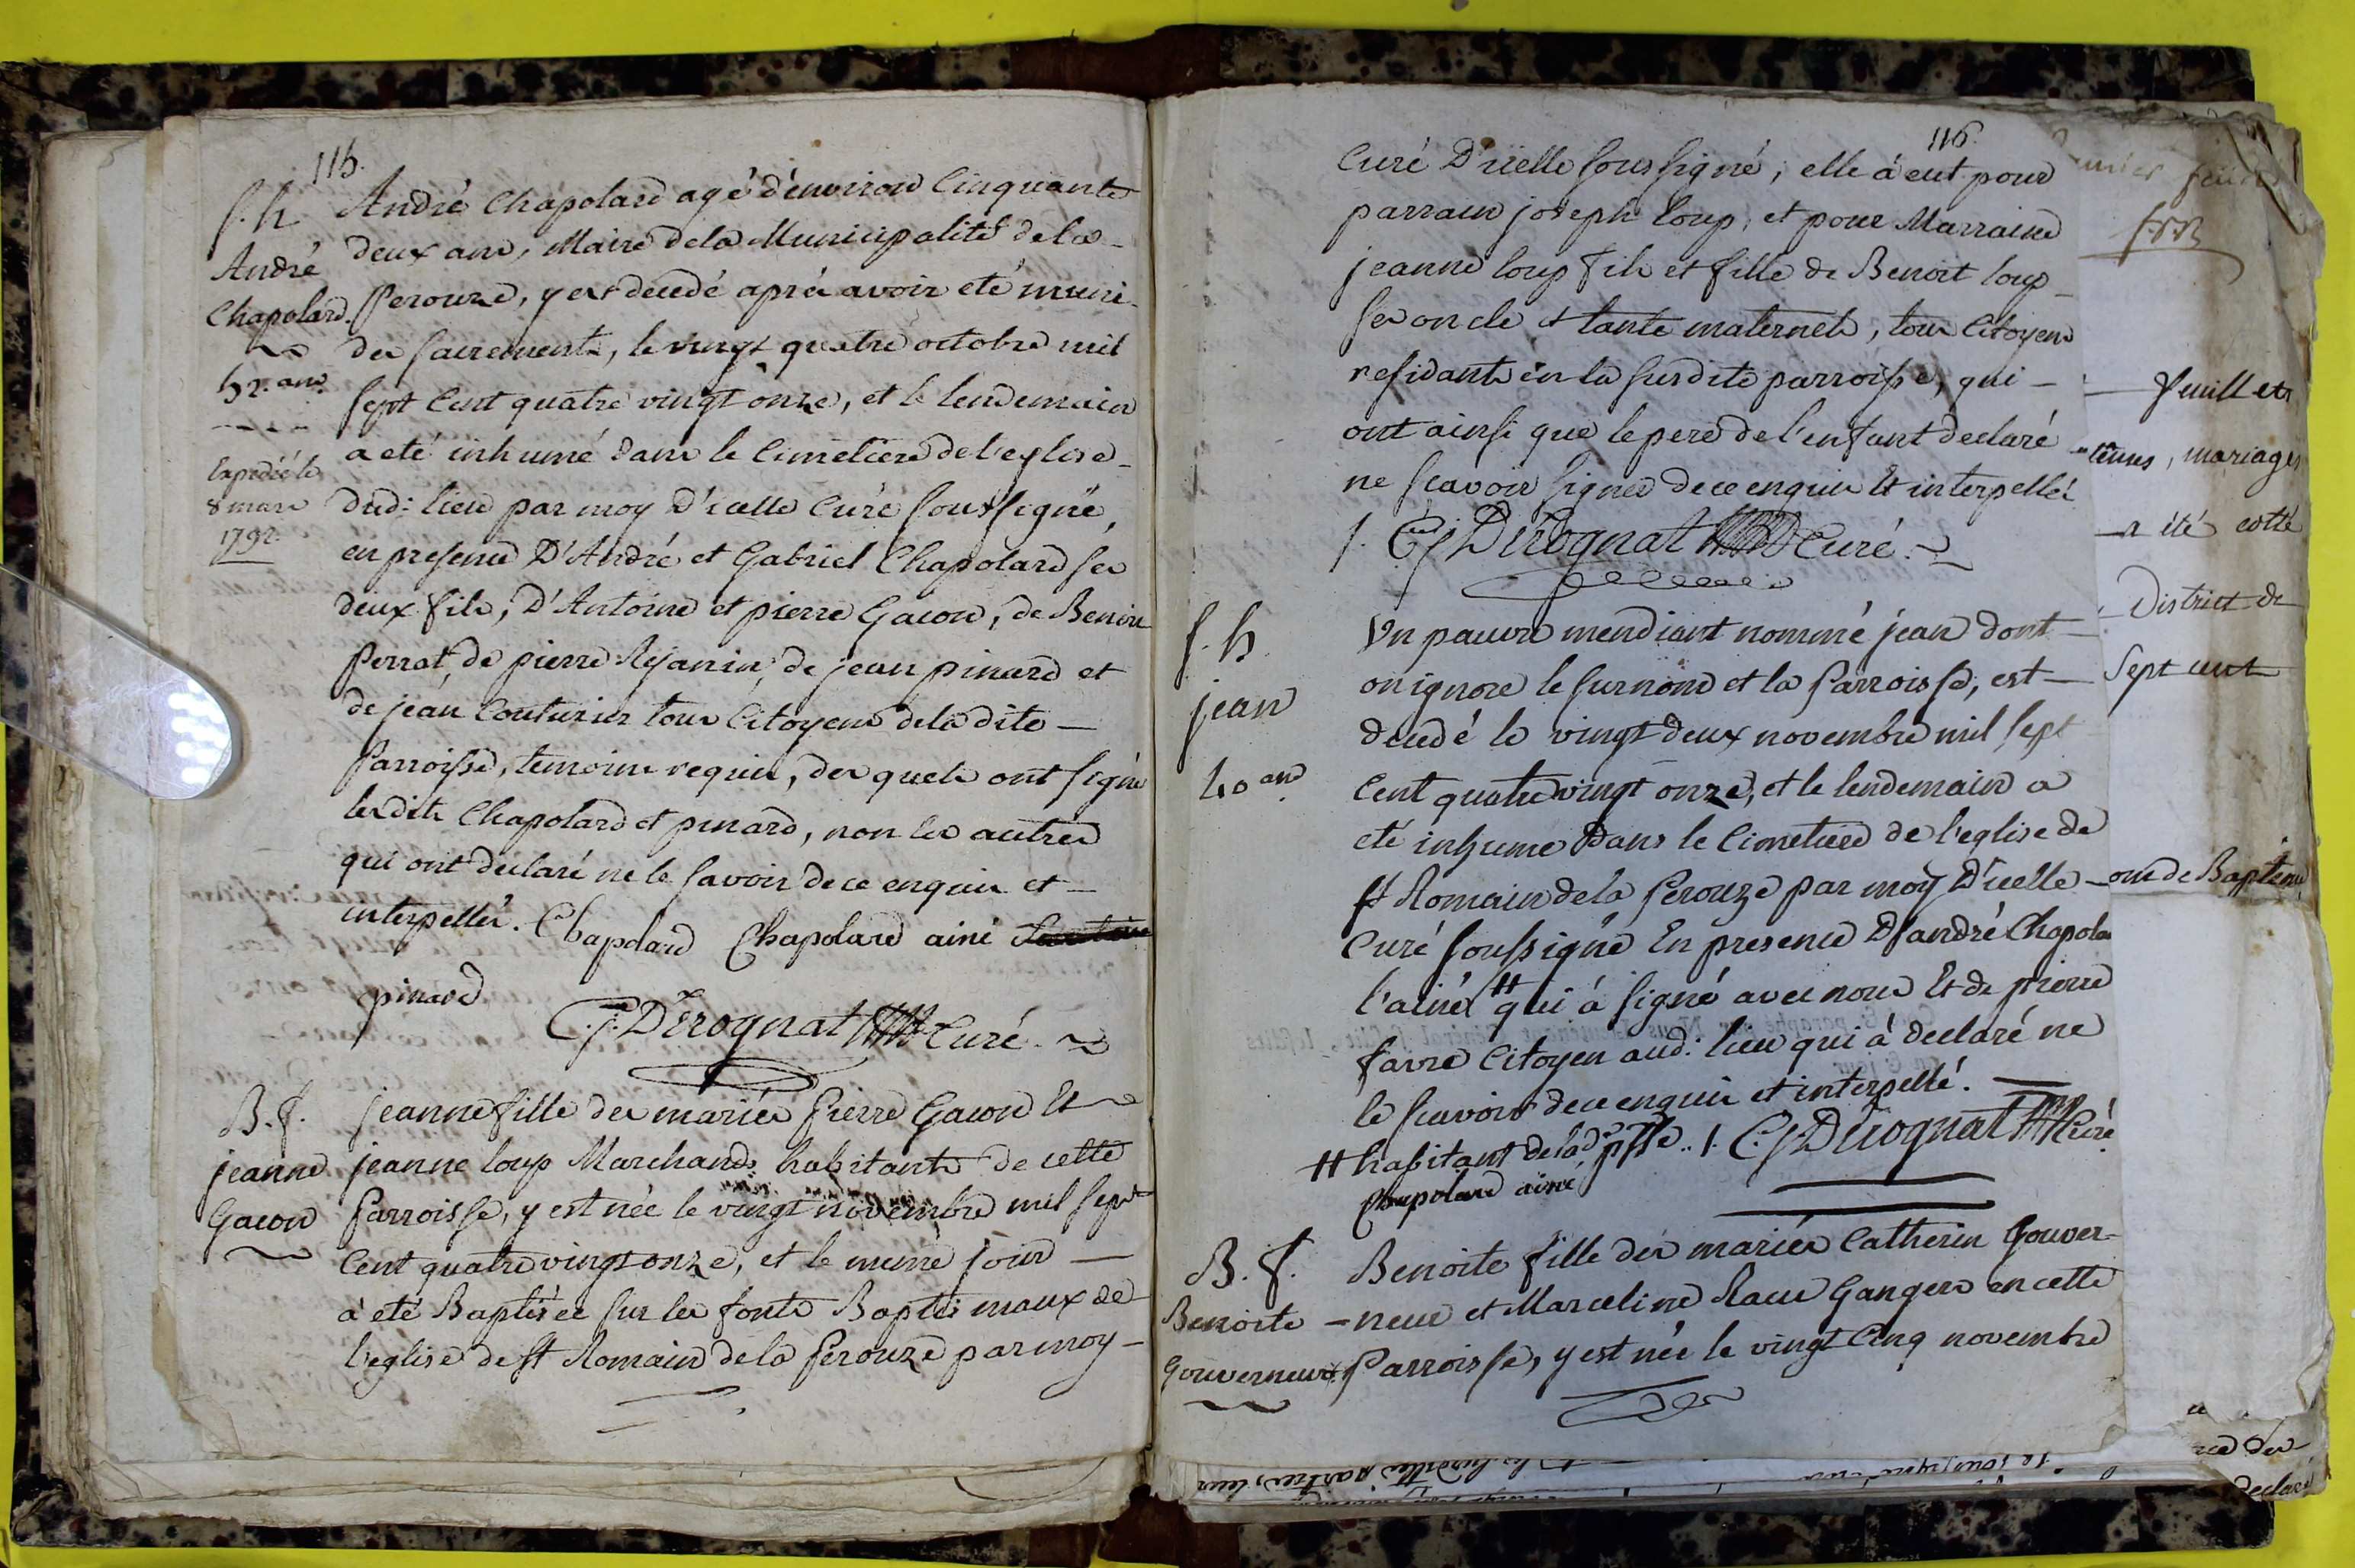 115.
S. h.
André
Chapolard.
52. ans
Expedié le
8 mars
1792.
André Chapolard agé d'environ Cinquante
deux ans, Maire de la Municipalité de la
Perouze, y est decedé aprés avoir eté muni
des sacrements, le vingt quatre octobre mil
sept Cent quatre vingt onze, et le lendemain
a eté inhumé dans le Cimetiere de l'eglise
dud: lieu par moy D'icelle Curé soussigné,
en presence D'André et Gabriel Chapolard ses
deux fils, D'Antoine et pierre Gacon, de Benoit
Perrat, de pierre Rejanin, de jean pinard et
de jean Couturier tous Citoyens de la dite
Parroisse, temoins requis, des quels ont signé
lesdits Chapolard et pinard, non les autres
qui ont declaré ne le savoir de ce enquis et
interpellés. Chapolard Chapolard ainé
pinard
C. j. Dérognat Curé.
B. f.
jeanne
Gacon
jeanne fille des mariés Pierre Gacon Et
jeanne loup Marchands habitants de cette
Parroisse, y est née le vingt novembre mil sept
Cent quatre vingt onze, et le meme jour
à eté Baptisée sur les fonts Baptismaux de
l'eglise de St Romain de la Perouze par moy
116.
Curé D'icelle soussigné; elle à eut pour
parrain joseph loup, et pour Marraine
jeanne loup fils et fille de Benoit loup
ses oncle et tante maternels, tous Citoyens
residants en la susdite parroisse, qui
ont ainsi que le pere de l'enfant declaré
ne scavoir signer de ce enquis Et interpellés
/. C. j. Dérognat Curé.
S. h.
jean
40 ans.
Un pauvre mendiant nommé jean dont
on ignore le surnom et la Parroisse, est
decedé le vingt deux novembre mil sept
Cent quatre vingt onze, et le lendemain a
eté inhumé Dans le Cimetiere de l'eglise de
St Romain de la Perouze par moy D'icelle
Curé soussigné En presence D'andré Chapola
l'ainé # qui à signé avec nous Et de pierre
favre Citoyen aud: lieu qui à declaré ne
le scavoir de ce enquis et interpellé.
# habitant de lad. psse.. /. C. j. Dérognat Curé
Chapolard ainé
B. f.
Benoite
Gouverneur.
Benoite fille des mariés Catherin Gouver-
-neur et Marceline Racu Gangers en cette
Parroisse, y est née le vingt Cinq novembre
feuillets
mariages
a été cotté
District de
Sept cent
de Baptême
declaré